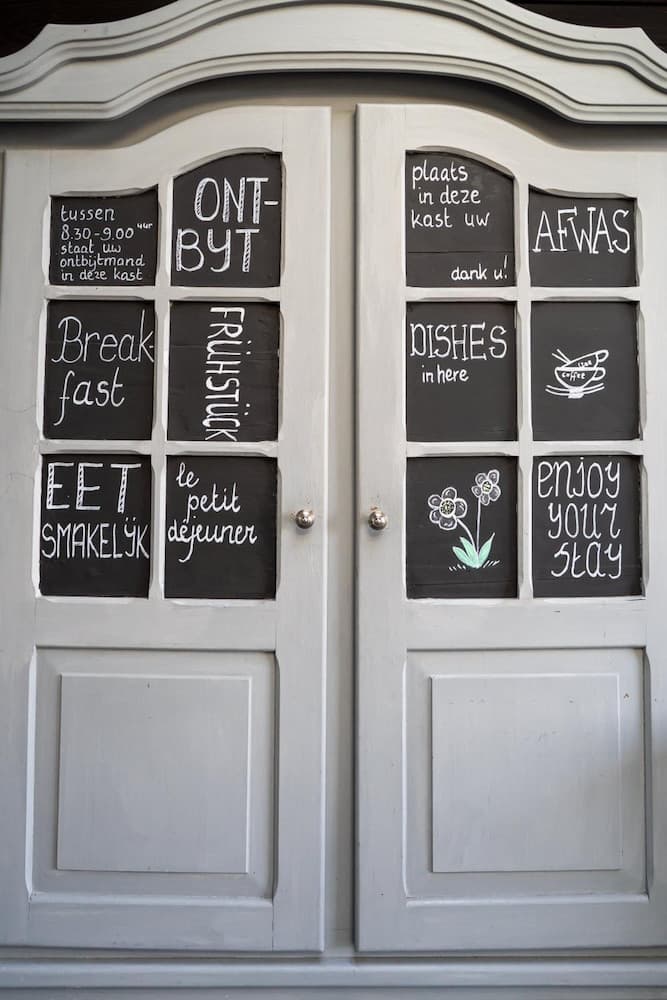 tussen
8.30-9.00 uur
staat uw
ontbijtmand
in deze kast
ONT-
BYT
Break-
fast
FRÜHSTÜCK
EET
SMAKELIJK
le
petit
déjeuner
plaats
in deze
kast uw
dank u!
AFWAS
DISHES
in here
coffee
enjoy
your
stay